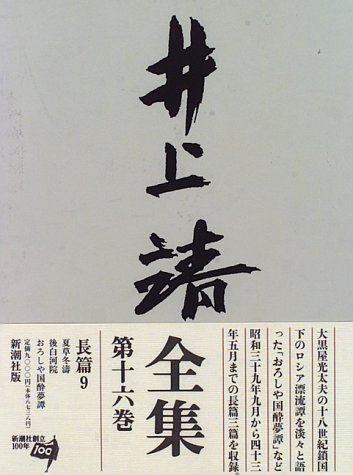 井上靖
大黒屋光太夫の十八世紀鎖国
下のロシア漂流譚を淡々と語
った「おろしや国酔夢譚」など
昭和三十九年九月から四十三
年五月までの長篇三篇を収録
全集
第十六巻
長篇9
夏草冬濤
後白河院
おろしや国酔夢譚
定価九〇〇〇円(本体八七三八円)
新潮社版
新潮社創立
100年
100